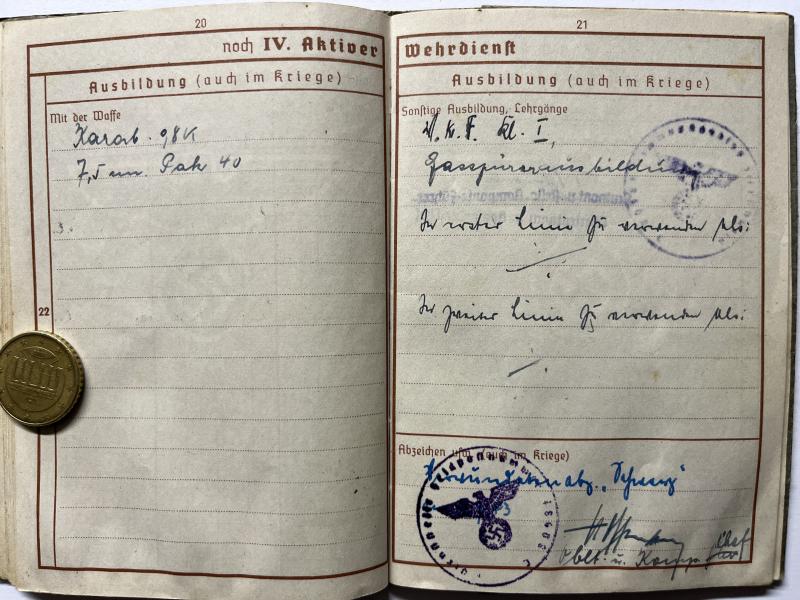 20
noch IV. Aktiver
Ausbildung (auch im Kriege)
Mit der Waffe
Karab. 98K
7,5 cm. Pak 40
22
21
Wehrdienst
Ausbildung (auch im Kriege)
Sonstige Ausbildung, Lehrgänge
Kl. I,
Gasspürerausbildung
In erster Linie zu verwenden als:
In zweiter Linie zu verwenden als:
Abzeichen usw. (auch im Kriege)
Verwundetenabz. „Schwarz"
Dienststelle Feldpostnummer
Oblt. u. Komp. Chef